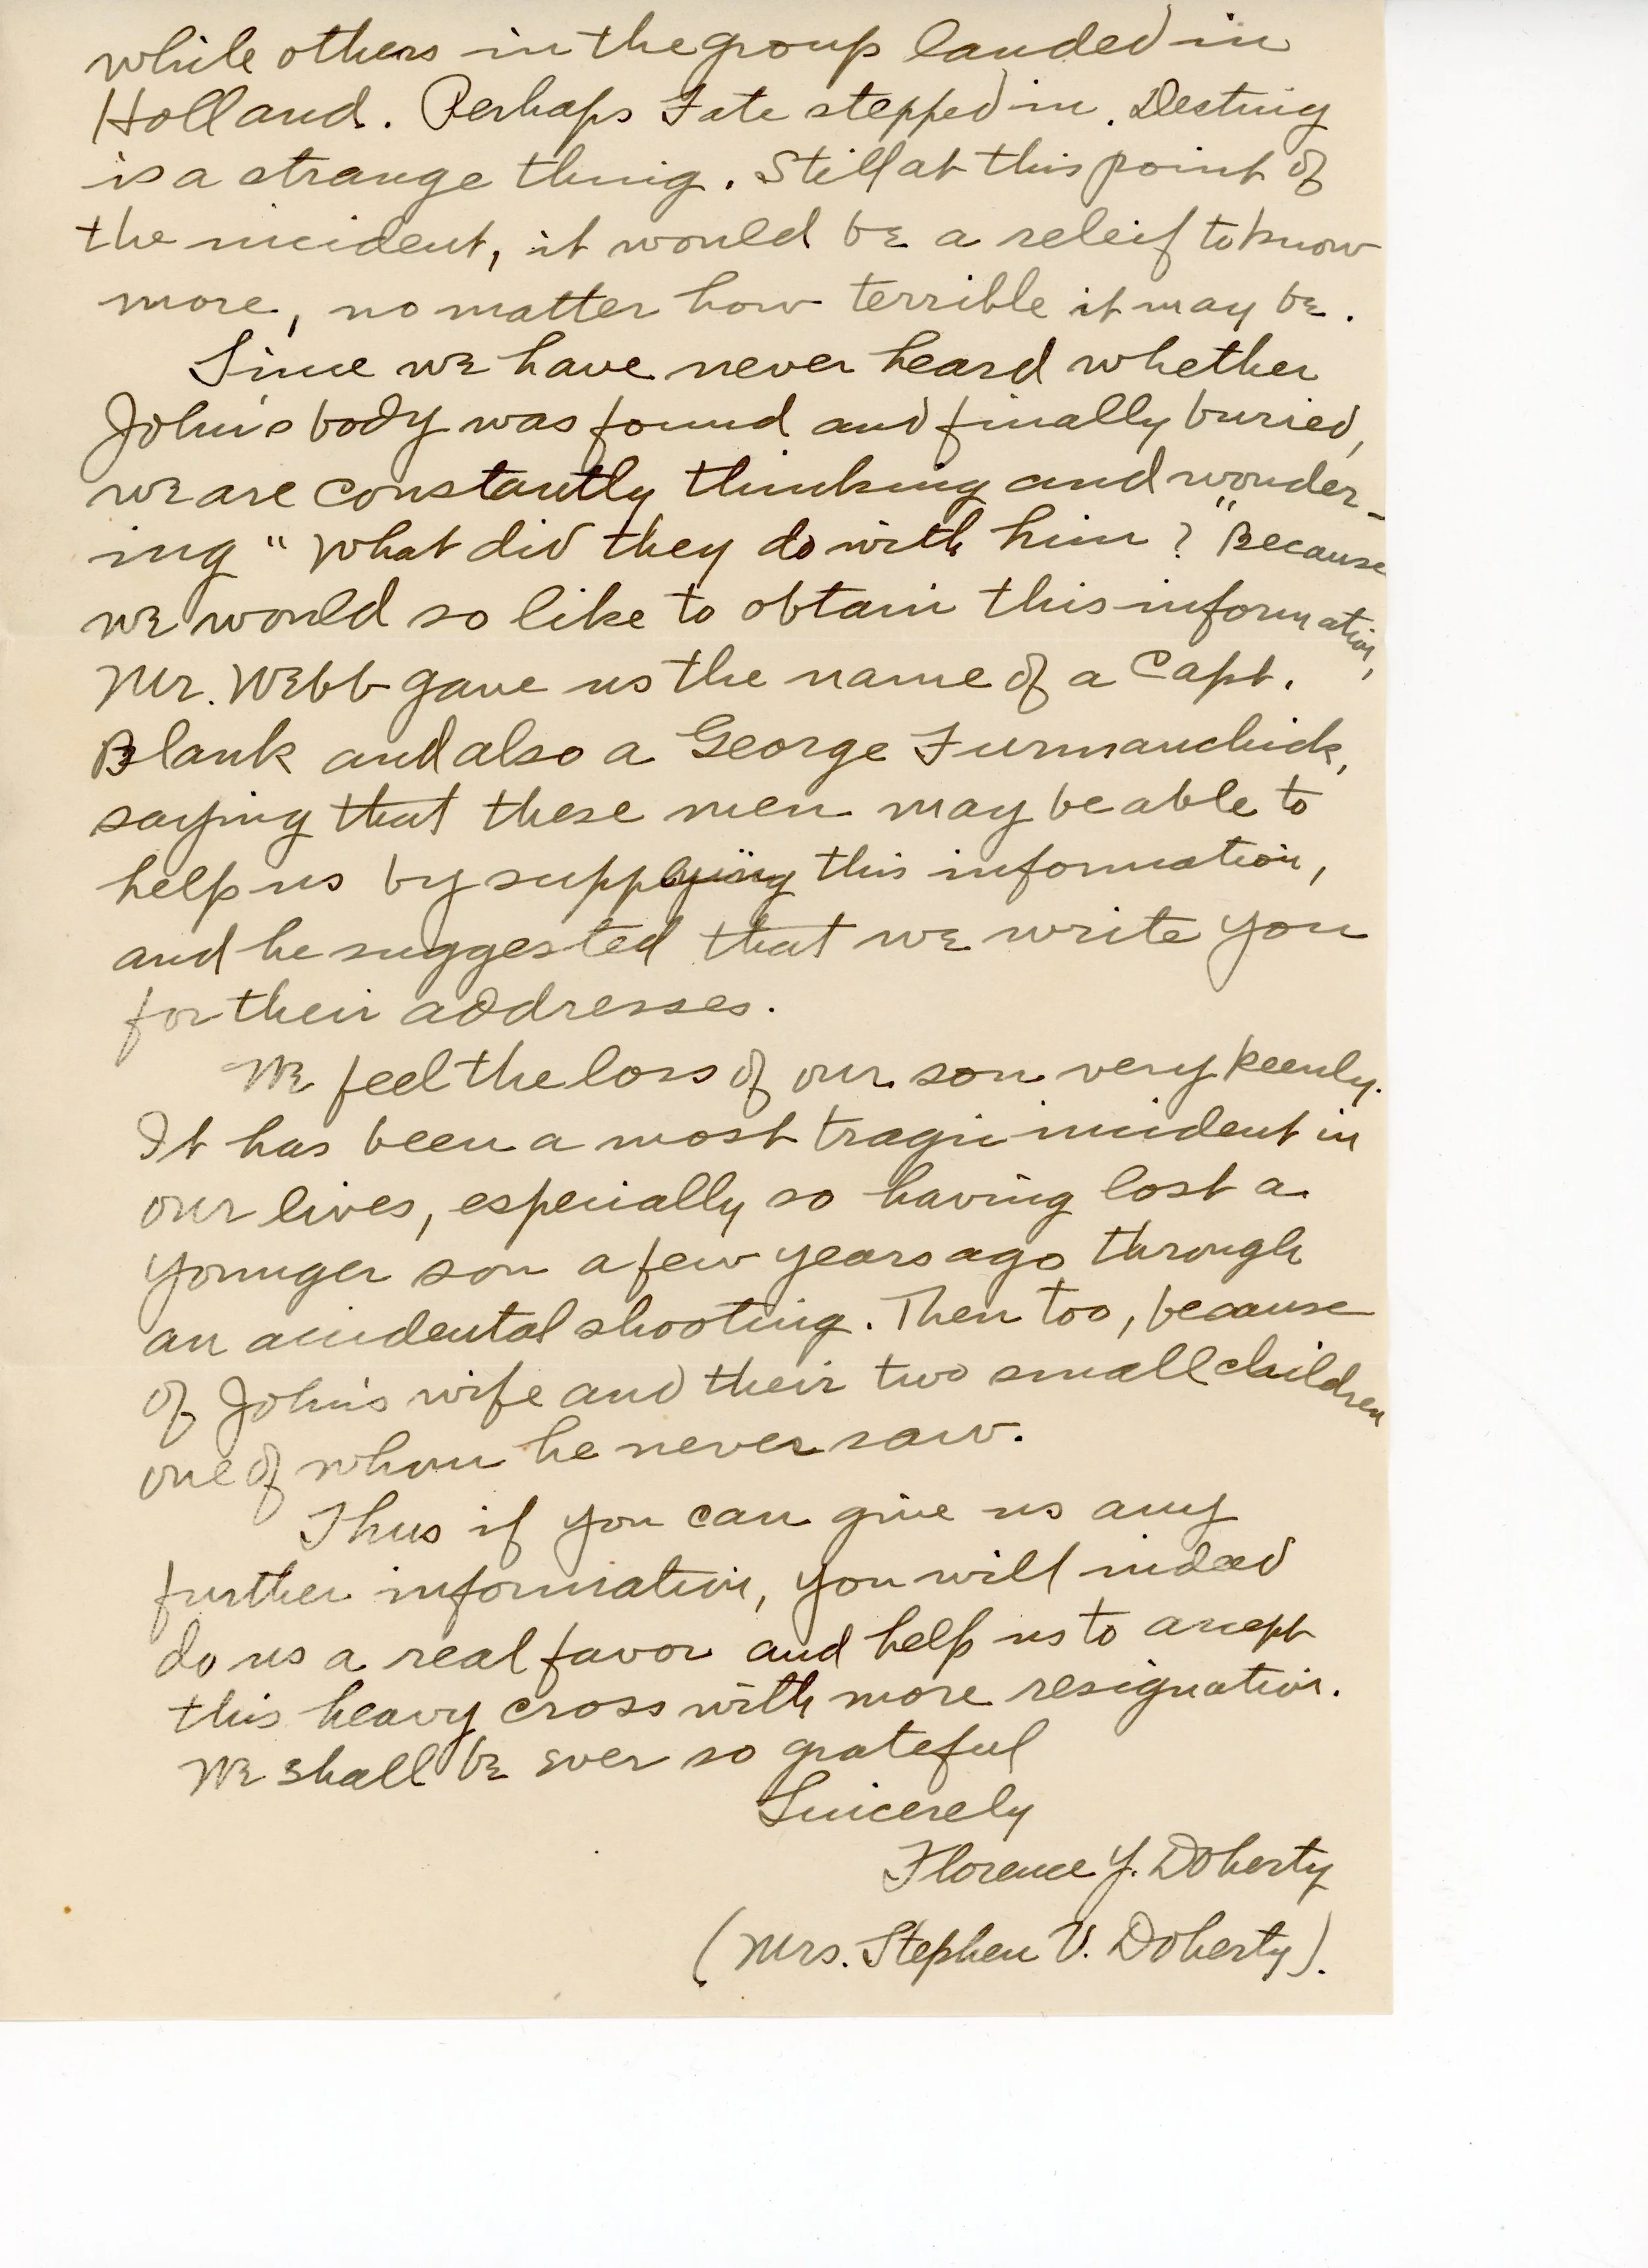 while others in the group landed in
Holland. Perhaps Fate stepped in. Destiny
is a strange thing. Still at this point of
the incident, it would be a releif to know
more, no matter how terrible it may be.
Since we have never heard whether
John's body was found and finally buried,
we are constantly thinking and wonder-
ing "What did they do with him?" Because
we would so like to obtain this information,
Mr. Webb gave us the name of a Capt.
Blank and also a George Furmanchick,
saying that these men may be able to
help us by supplying this information,
and he suggested that we write you
for their addresses.
We feel the loss of our son very keenly.
It has been a most tragic incident in
our lives, especially so having lost a
younger son a few years ago through
an accidental shooting. Then too, because
of John's wife and their two small children
one of whom he never saw.
Thus if you can give us any
further information, you will indeed
do us a real favor and help us to accept
this heavy cross with more resignation.
We shall be ever so grateful
Sincerely
Florence Y. Doherty
(Mrs. Stephen V. Doherty).